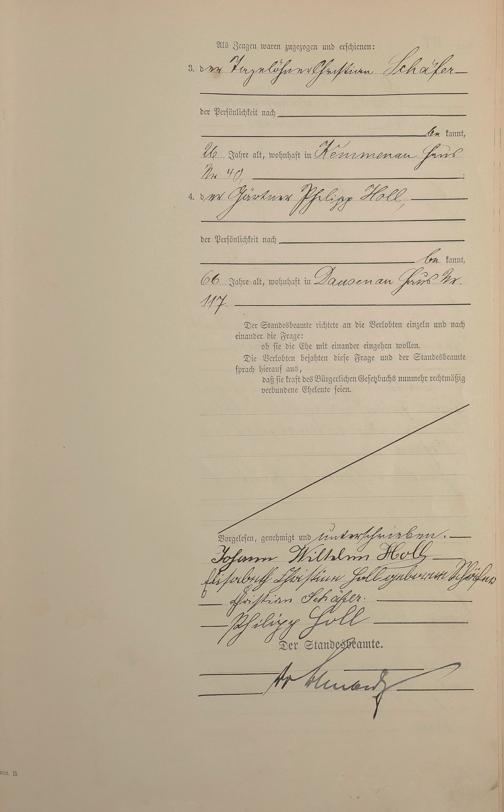 Als Zeugen waren zugezogen und erschienen:
3. der Tagelöhner Christian Schäfer
der Persönlichkeit nach
be kannt,
26 Jahre alt, wohnhaft in Kemmenau Haus
Nr. 40,
4. der Gärtner Philipp Holl,
der Persönlichkeit nach
be kannt,
66 Jahre alt, wohnhaft in Dausenau Haus Nr.
117.
Der Standesbeamte richtete an die Verlobten einzeln und nach
einander die Frage:
ob sie die Ehe mit einander eingehen wollen.
Die Verlobten bejahten diese Frage und der Standesbeamte
sprach hierauf aus,
daß sie kraft des Bürgerlichen Gesetzbuchs nunmehr rechtmäßig
verbundene Eheleute seien.
Vorgelesen, genehmigt und unterschrieben.
Johann Wilhelm Holl
Elisabeth Christian Holl geborene Schäfer
Christian Schäfer.
Philipp Holl
Der Standesbeamte.
B